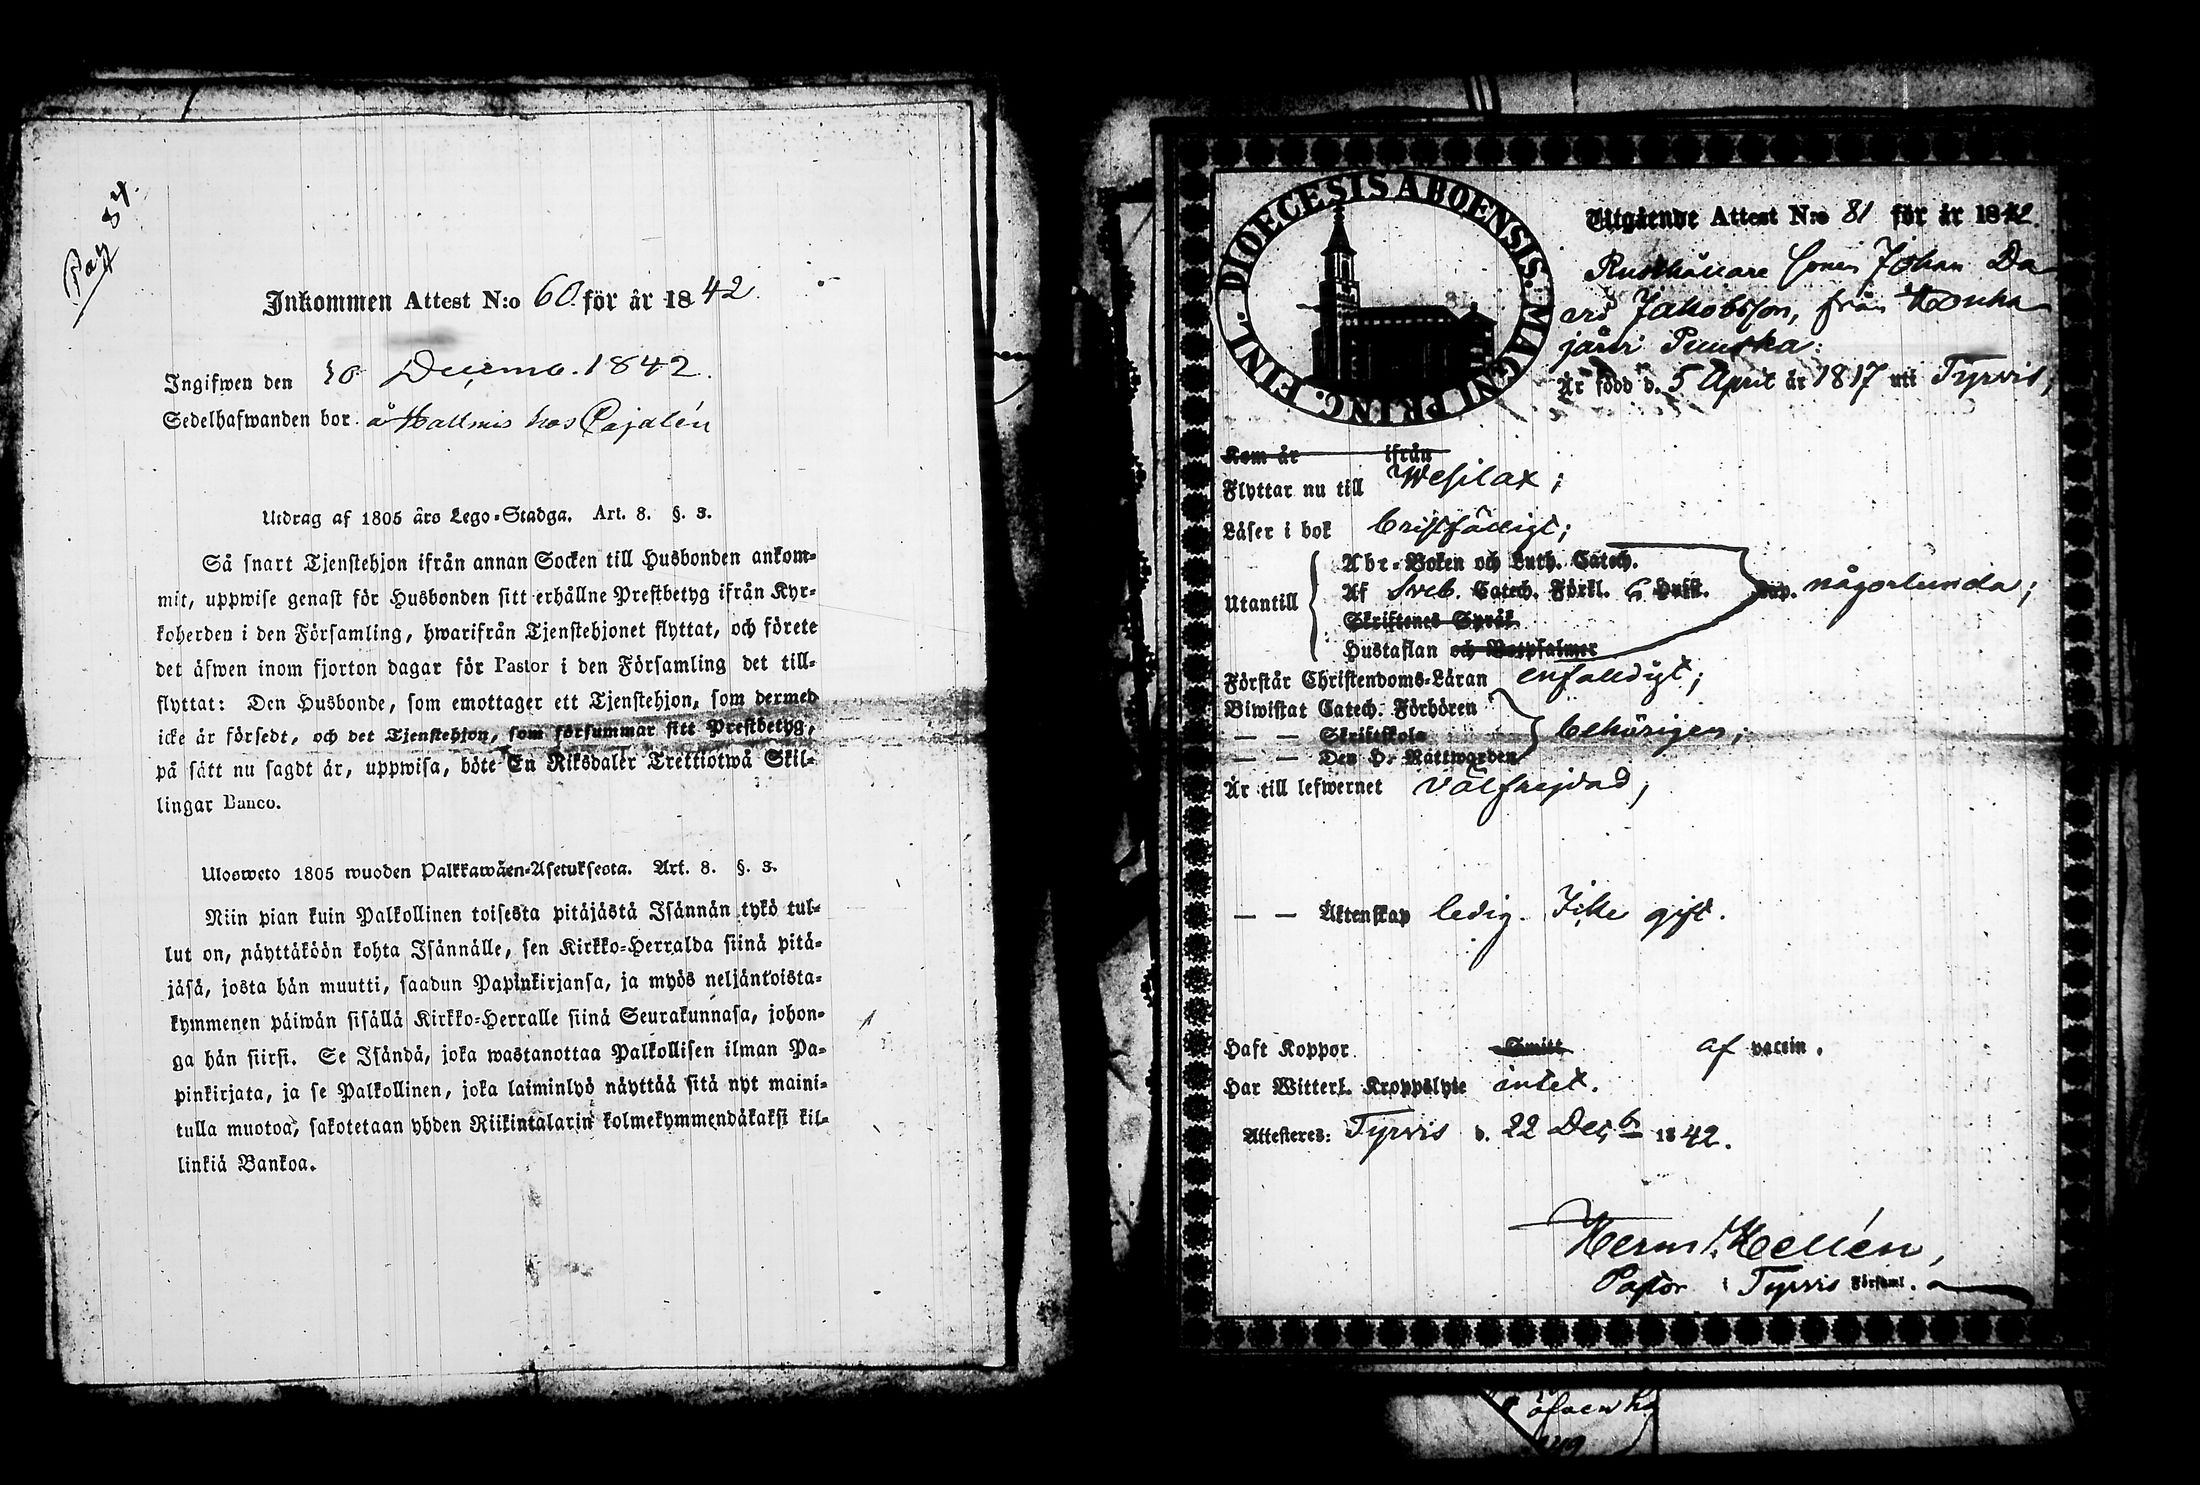 Pag 84.
Inkommen Attest N:o 60. för år 1842.
Ingifwen den 30 Decemb. 1842.
Sedelhafwanden bor å Hallmis hos Pajalén
Utdrag af 1805 års Lego-Stadga. Art. 8. §. 3.
Så snart Tjenstehjon ifrån annan Socken till Husbonden ankom-
mit, uppwise genast för Husbonden sitt erhållne Prestbetyg ifrån Kyr-
koherden i den Församling, hwarifrån Tjenstehjonet flyttat, och förete
det äfwen inom fjorton dagar för Pastor i den Församling det till-
flyttat: Den Husbonde, som emottager ett Tjenstehjon, som dermed
icke är försedt, och det Tjenstehjon, som försummar sitt Prestbetyg,
på sätt nu sagdt är, uppwisa, böte En Riksdaler Trettiotwå Skil-
lingar Banco.
Ulosweto 1805 wuoden Palkkawäen-Asetuksesta. Art. 8. §. 3.
Niin pian kuin Palkollinen toisesta pitäjästä Isännän tykö tul-
lut on, näyttäköön kohta Isännälle, sen Kirkko-Herralda siinä pitä-
jäsä, josta hän muutti, saadun Papinkirjansa, ja myös neljäntoista-
kymmenen päiwän sisällä Kirkko-Herralle siinä Seurakunnasa, johon-
ga hän siirsi. Se Isändä, joka wastanottaa Palkollisen ilman Pa-
pinkirjata, ja se Palkollinen, joka laiminlyö näyttää sitä nyt maini-
tulla muotoa, sakotetaan yhden Riikintalarin kolmekymmendäkaksi kil-
linkiä Bankoa.
DIOECESIS ABOENSIS. MAGNI PRINC. FINL.
Utgående Attest N:o 81 för år 1842.
Rusthållare Sonen Johan Da
vid Jakobsson, från Houha
järvi Puuska:
Är född d. 5 April år 1817 uti Tyrvis,
Kom år ifrån
Flyttar nu till Wesilax;
Läser i bok bristfälligt;
Utantill
Abc-Boken och Luth. Catech.
Af Sveb. Catech. Förkl. Hufst. någorlunda;
Skriftenes Språk
Hustaflan och Botpsalmer
Förstår Christendoms-Läran enfaldigt;
Biwistat Catech. Förhören
— — Skriftskola behörigen;
— — Den H. Nattwarden
Är till lefwernet välfrejdad,
— — Äktenskap ledig. Icke gift.
Haft Koppor Smitt af vaccin.
Har Witterl. Kroppslyte intet.
Attesteres: Tyrvis d. 22 Decb 1842.
Herm. Hellén,
Pastor i Tyrvis Församl.